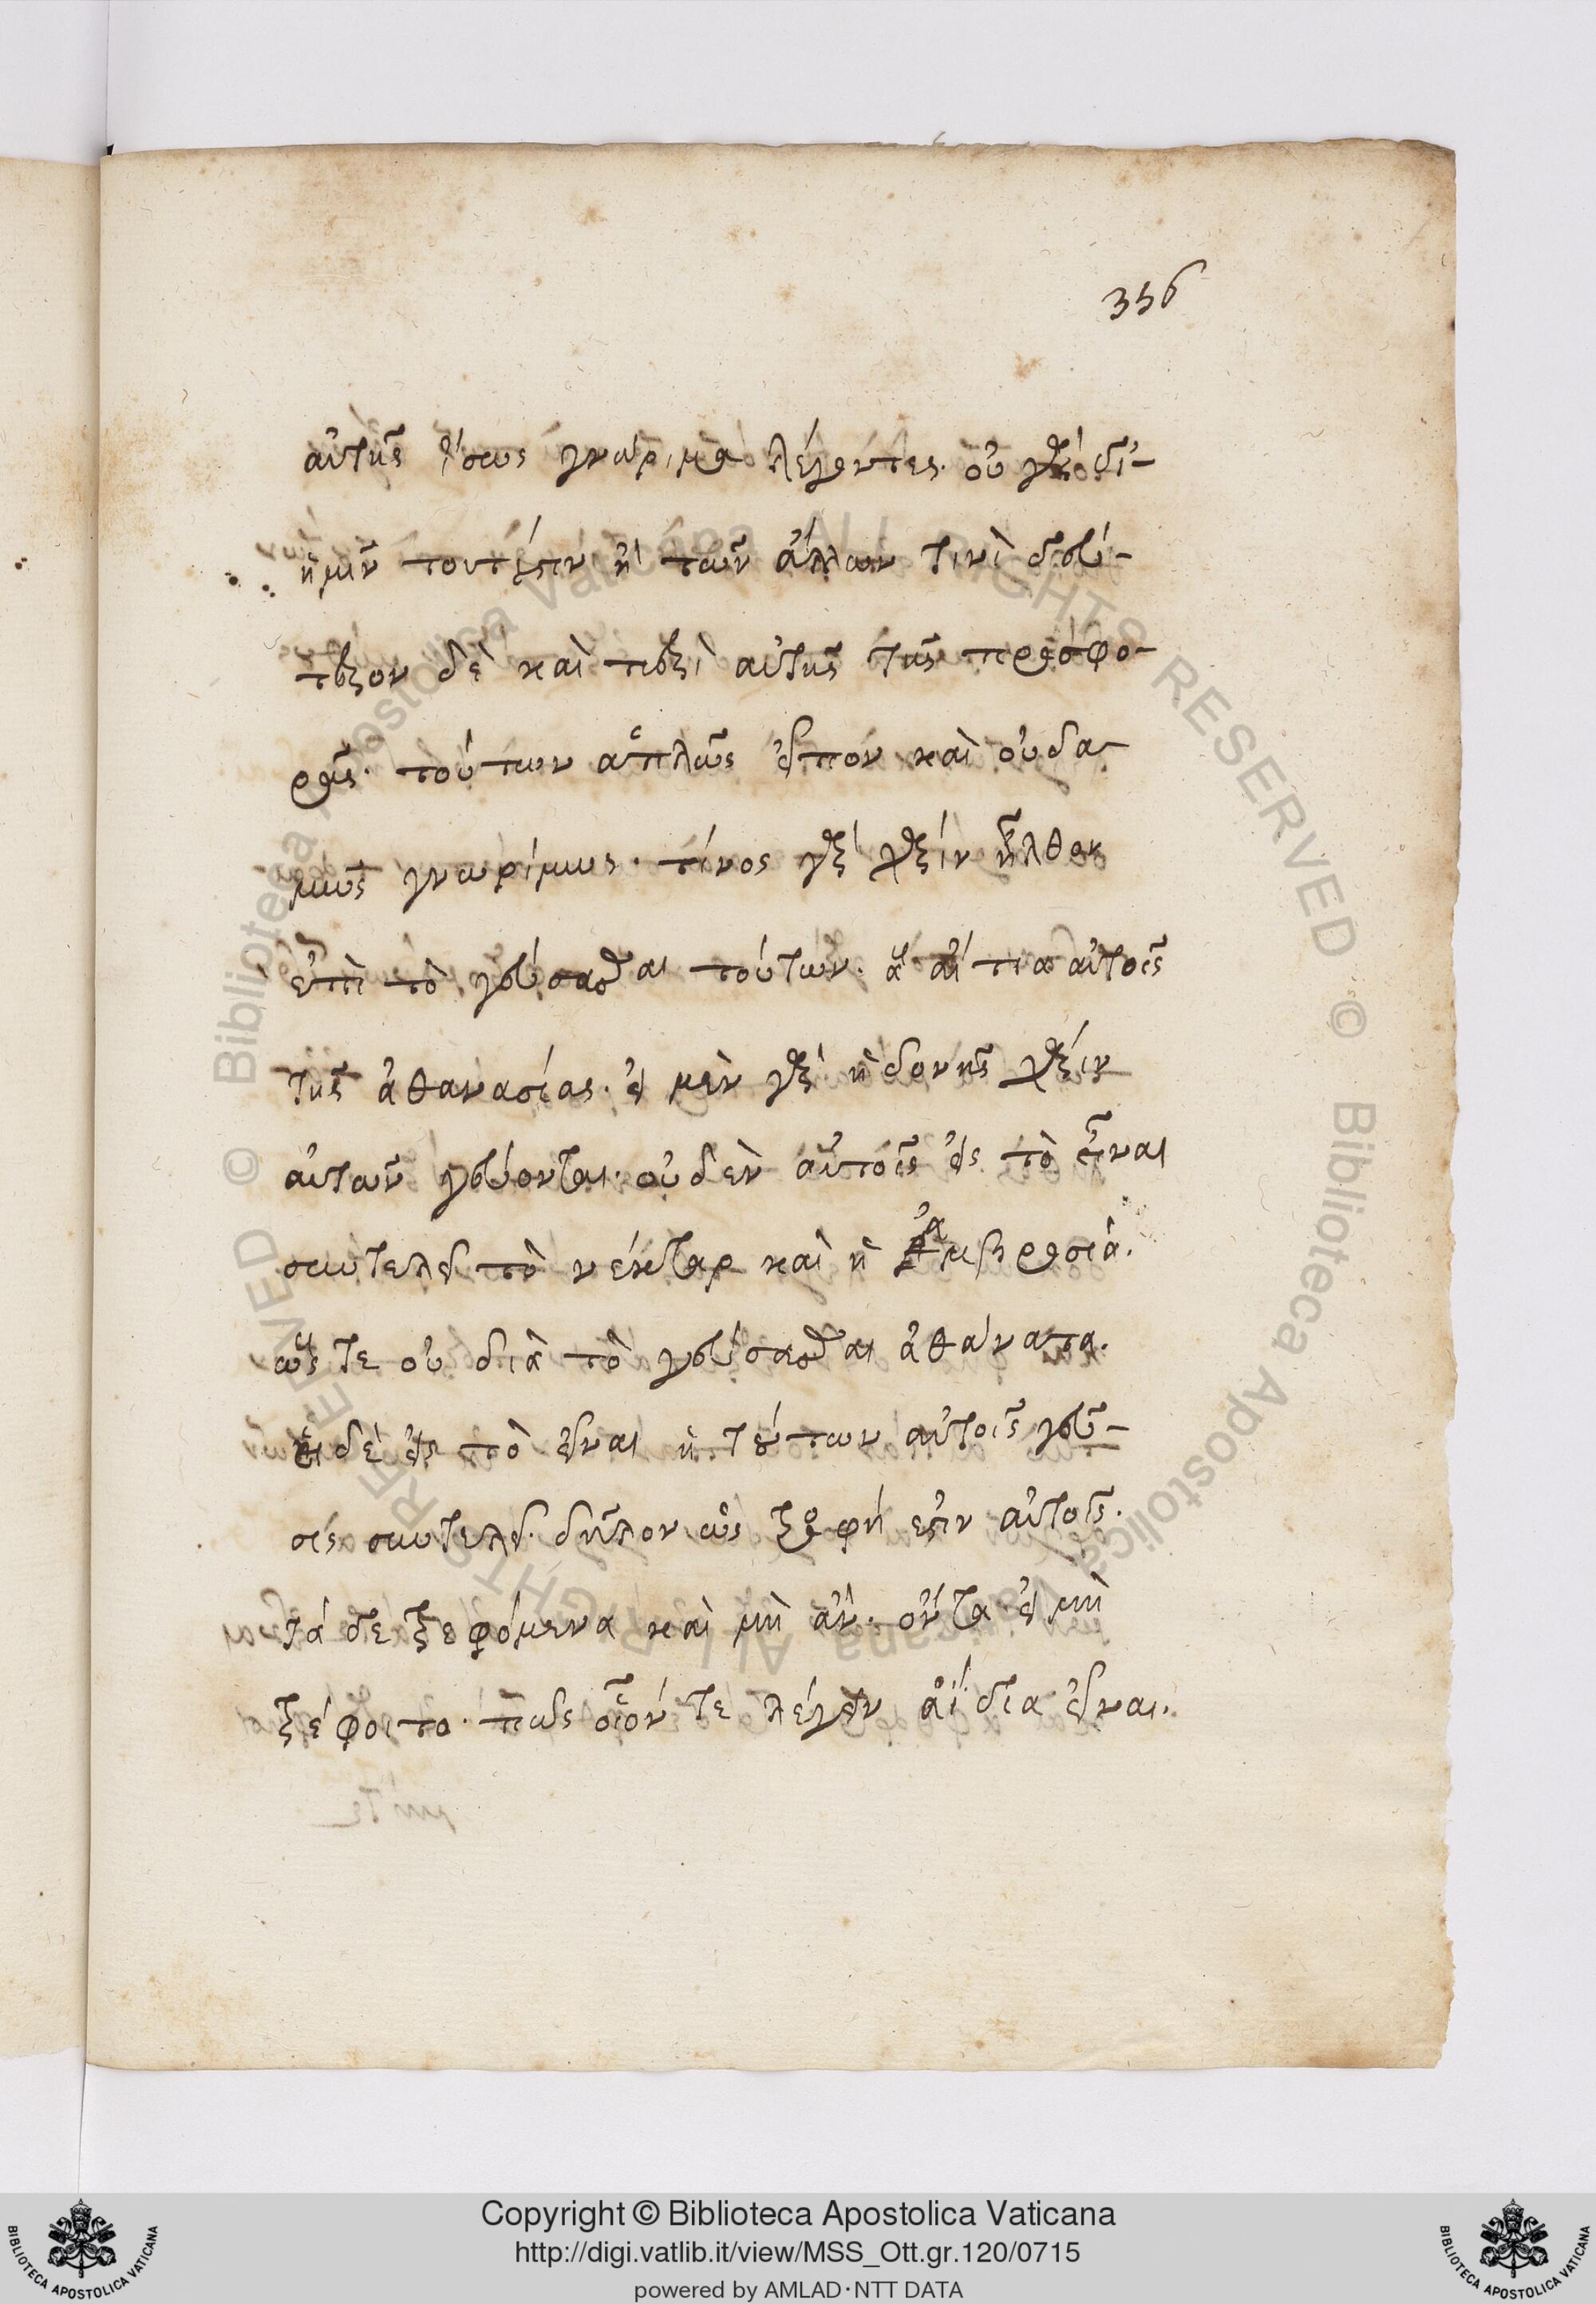 356
αὐτῆς ἴσως γνώριμα λέγοντες. οὐ γὰρ δι-
ἡμῖν τουτέστιν ἢ τῶν ἄλλων τινὶ δευ-
τερον δὲ καὶ περὶ αὐτῆς τῆς προσφο-
ρᾶς. τούτων ἁπλῶς εἶπον καὶ οὐδα-
μῶς γνωρίμως. τίνος γὰρ χάριν ἦλθον
ἐπὶ τὸ γεύσασθαι τούτων. ἃ αἴτια αὐτοῖς
τῆς ἀθανασίας. εἰ μὲν γὰρ ἡδονῆς χάριν
αὐτῶν γεύονται. οὐδὲν αὐτοῖς εἰς τὸ εἶναι
συντελεῖ τὸ νέκταρ καὶ ἡ ἀμβροσία.
ὥστε οὐ διὰ τὸ γεύσασθαι ἀθάνατα.
εἰ δὲ εἰς τὸ εἶναι ἡ τούτων αὐτοῖς γεῦ-
σις συντελεῖ. δῆλον ὡς τροφή ἐστιν αὐτοῖς.
τά δε τρεφόμενα καὶ μὴ ἂν. ὄντα εἰ μὴ
τρέφοιτο. πῶς οἷόν τε λέγειν ἀΐδια εἶναι.
© Biblioteca Apostolica Vaticana ALL RIGHTS RESERVED
Copyright © Biblioteca Apostolica Vaticana
http://digi.vatlib.it/view/MSS_Ott.gr.120/0715
powered by AMLAD·NTT DATA
BIBLIOTECA APOSTOLICA VATICANA
BIBLIOTECA APOSTOLICA VATICANA